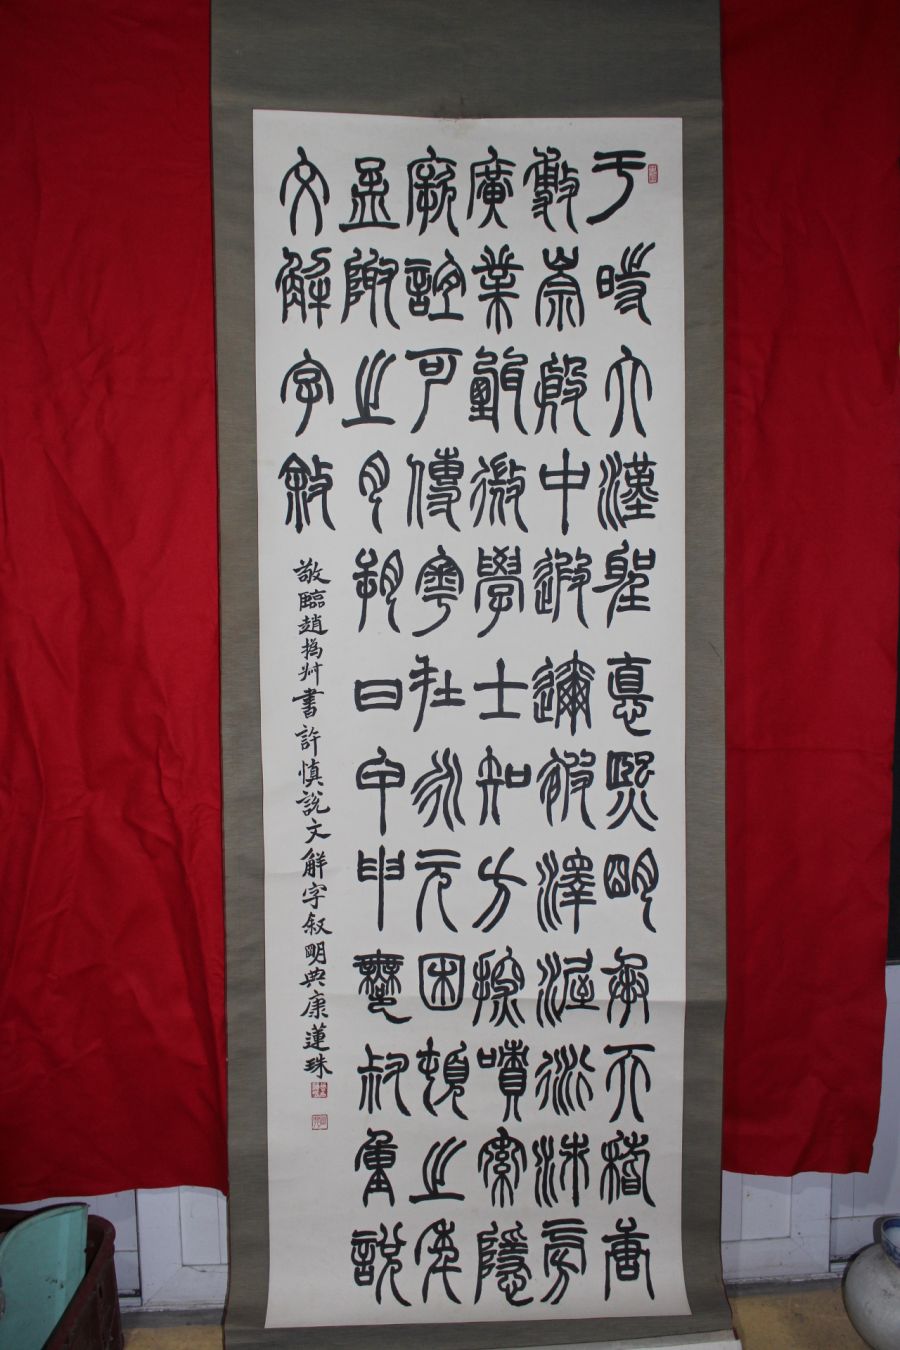 于時大漢聖悳熙朙承天稽唐
敷崇殷中遐邇被澤渥衍沛滂
廣業甄微學士知方探嘖索隱
厥誼可傳粵在永元困頓之年
孟陬之月朔日甲申鄦叔重說
文解字敘
敬臨趙撝叔書許慎說文解字叙明典康蓮珠